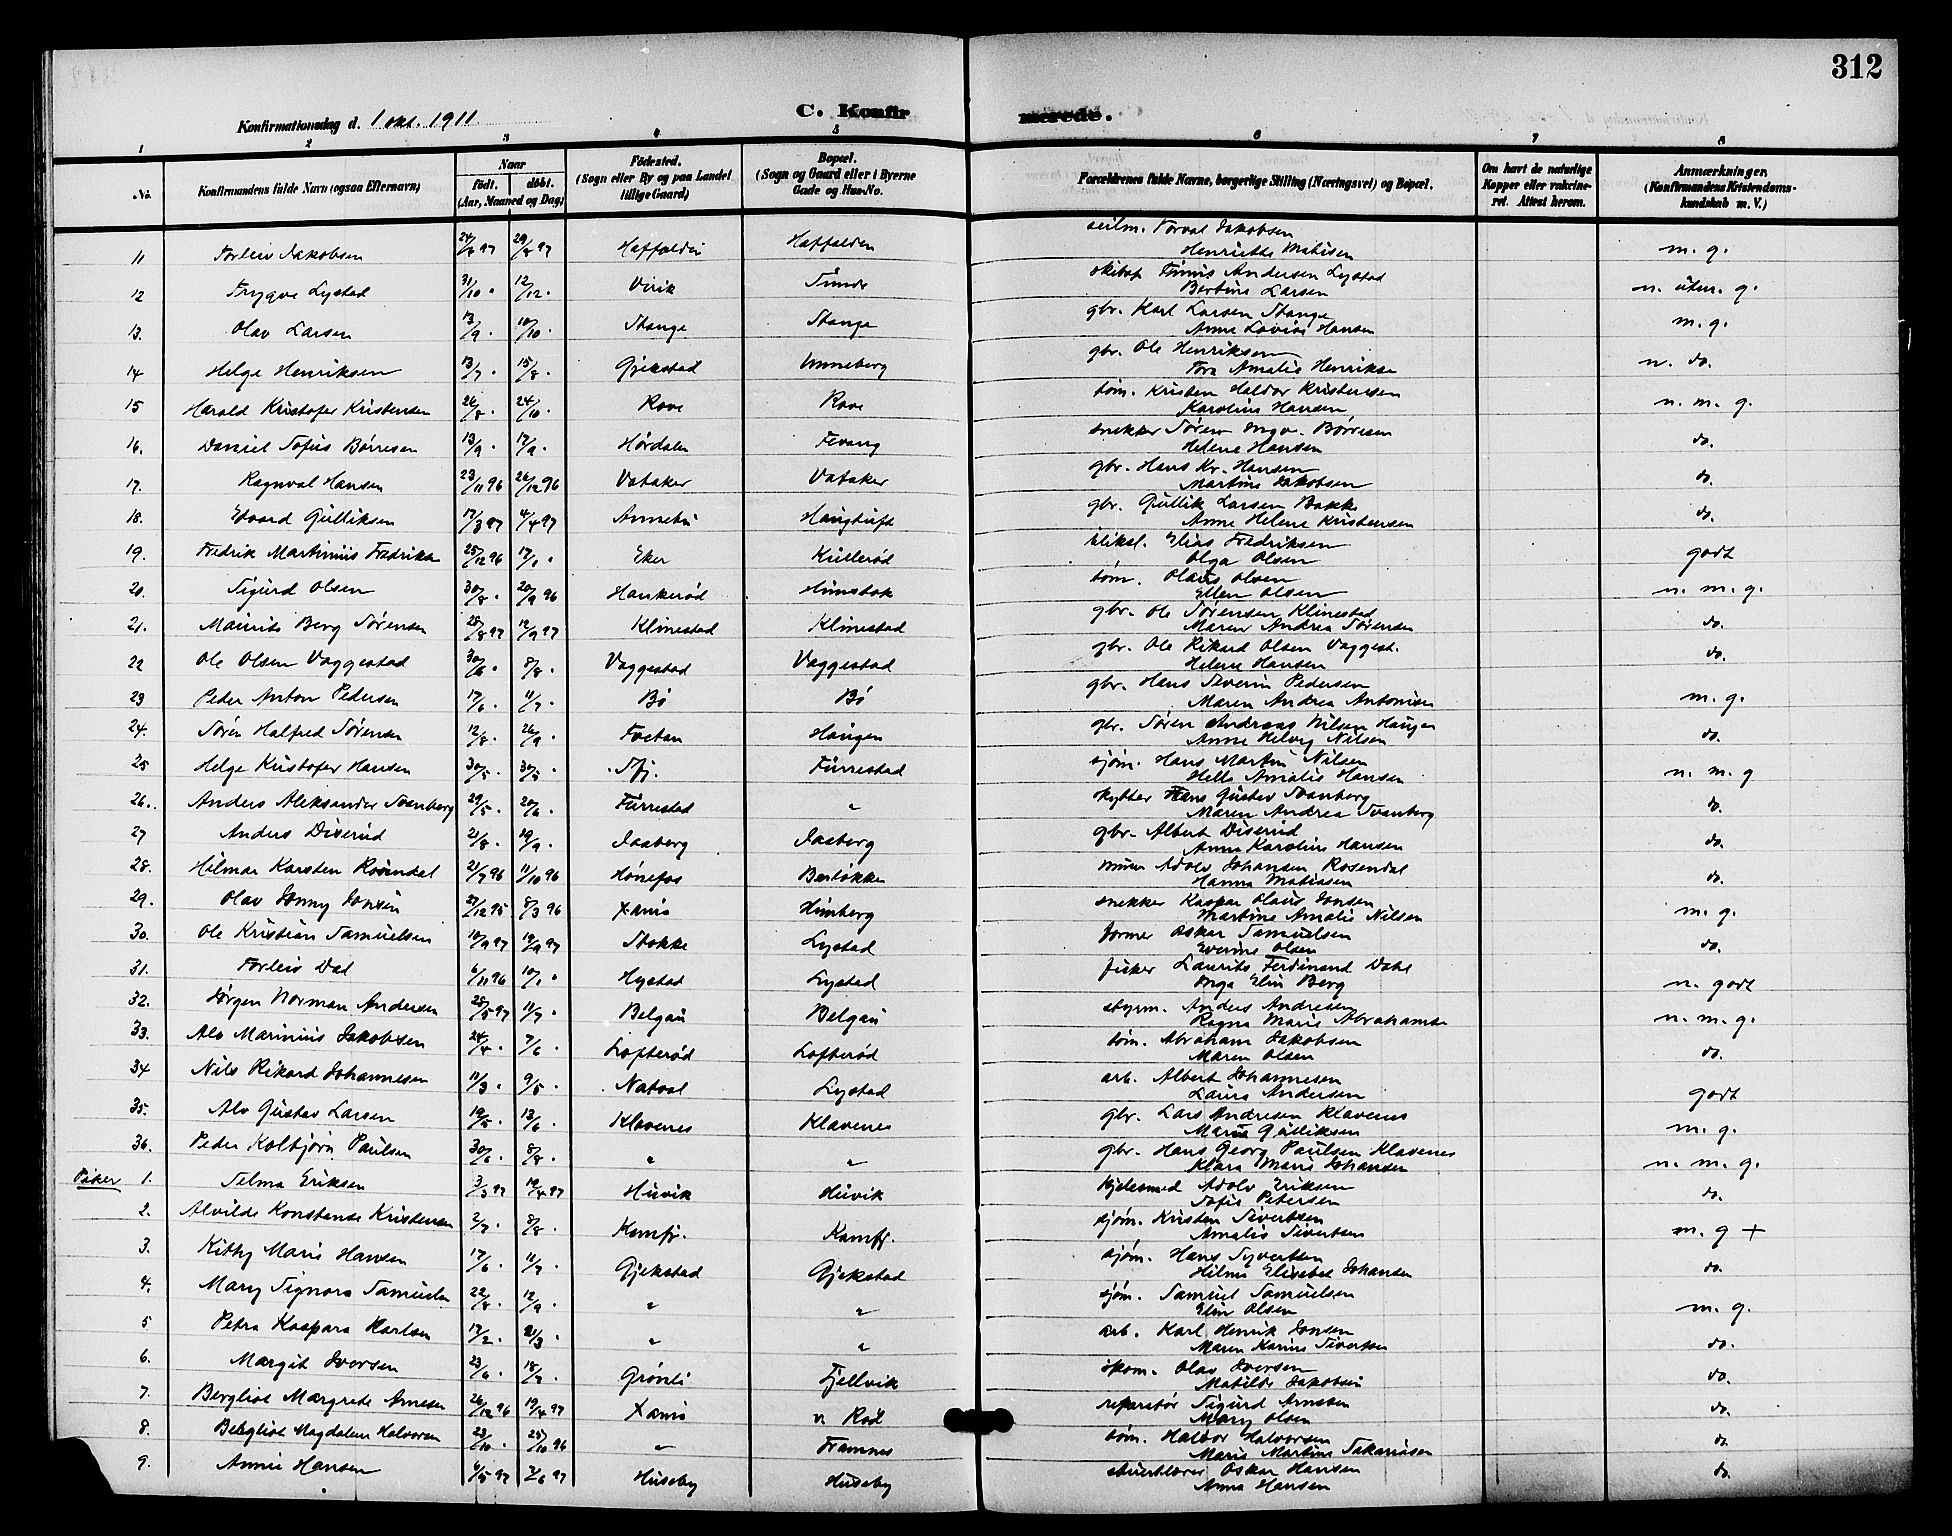 312
Konfirmationsdag d. 1 okt. 1911
C. Konfirmerede.
1 2 3 4 5 6 7 8
No. Konfirmandens fulde Navn (ogsaa Efternavn) Naar födt. döbt. (Aar, Maaned og Dag) Födested. (Sogn eller By og paa Landet tillige Gaard) Bopæl. (Sogn og Gaard eller i Byerne Gade og Hus-No. Forældrenes fulde Navne, borgerlige Stilling (Næringsvei) og Bopæl. Om havt de naturlige Kopper eller vakcineret. Attest herom. Anmærkninger. (Konfirmandens Kristendomskundskab m. V.)
11 Torleiv Jakobsen 24/8 97 29/8 97 Haffalden Haffalden seilm. Torval Jakobsen
Henriette Matisen m. g.
12 Trygve Lystad 31/10 . 12/12 . Virik Sunde skibst Andersen Lystad
Bertine Larsen n. utm. g.
13. Olav Larsen 13/9 . 10/10 . Stange Stange gbr. Karl Larsen Stange
Anne Lovise Hansen m. g.
14 Helge Henriksen 13/7 . 15/8 . Gjekstad Unneberg gbr. Ole Henriksen
Tora Amalie Henrikse n. do.
15 Harald Kristofer Kristensen 26/8 . 24/10 . Rove Rove töm. Kristen Haldor Kristensen
Karoline Hansen n. m. g.
16. Daniel Sofus Börresen 13/9 . 17/9 . Hørdalen Fevang snekker Sören Ingv. Börresen
Helene Hansen do.
17. Ragnval Hansen 23/11 96 26/12 96 Vataker Vataker gbr. Hans Kr. Hansen
Martine Jakobsen do.
18. Edvard Gulliksen 17/3 97 4/4 97 Annebu Haugtuft gbr. Gullik Larsen Bakke
Anne Helene Kristensen do.
19. Fredrik Martinius Fredrikse 25/12 96 17/1 . Eker Kullerød bliksl. Elias Fredriksen
Olga Olsen godt
20. Sigurd Olsen 30/8 . 20/9 96 Haukerød Hunstok töm. Olaus Olsen
Ellen Olsen n. m. g.
21. Maurits Berg Sørensen 28/8 97 12/9 97 Klinestad Klinestad gbr. Ole Sørensen Klinestad
Maren Andrea Sørensen do.
22 Ole Olsen Vaggestad 30/6 . 8/8 . Vaggestad Vaggestad gbr. Ole Rikard Olsen Vaggest.
Helene Hansen do.
23 Peder Anton Pedersen 17/6 . 11/7 . Bö Bö gbr. Hans Severin Pedersen
Maren Andrea Antonisen m. g.
24. Sören Halfred Sörensen 12/8 . 26/9 . Fevang Haugen gbr. Sören Andreas Nilsen Haugen
Anne Helvig Nilsen do.
25 Helge Kristofer Hansen 30/5 . Sfj. Furrestad sjöm. Hans Martin Nilsen
Amalie Hansen n. m. g
26. Anders Aleksander Svanberg 29/5 . 20/6 . Furrestad " skytter Hans Gustav Svanberg
Maren Andrea Svanberg do.
27 Anders Diserud 21/8 . 19/9 . Jaaberg Jaaberg gbr. Albert Diserud
Anne Karoline Hansen do.
28. Hilmar Karsten Rosendal 21/7 96 11/10 96 Hønefos Berløkke murer Adolv Johansen Rosendal
Hanna Matiasen do.
29. Olav Jonny Jonsen 27/12 95 8/3 96 Xania Hunberg snekker Kaspar Olaus Jonsen
Martine Amalie Nilsen m. g.
30. Ole Kristian Samuelsen 10/9 97 19/9 97 Stokke Lystad former Oskar Samuelsen
Everine Olsen do.
31. Torleiv Dal 6/11 96 10/1 . Hystad Lystad fisker Laurits Ferdinand Dahl
Inga Elin Berg n. godt
32. Jörgen Norman Andersen 28/5 97 11/7 . Belgau Belgau styrm. Anders Andresen
Ragna Marie Abrahamse n. m. g.
33. Alv Marinius Jakobsen 24/4 . 7/6 . Lofterød Lofterød töm. Abraham Jakobsen
Maren Olsen do.
34 Nils Rikard Johannesen 11/3 . 9/5 . Natvol Lystad arb. Albert Johannesen
Laura Andersen godt
35. Alv Gustav Larsen 19/5 . 13/6 . Klavenes Klavenes gbr. Lars Andresen Klavenes
Maria Gulliksen m. g.
36. Peder Kolbjörn Paulsen 30/6 . 8/8 . " " gbr. Hans Georg Paulsen Klavenes
Klara Marie Johansen n. m. g.
Piker 1. Selma Eriksen 3/3 97 19/4 97 Huvik Huvik kjelesmed Adolv Eriksen
Sofie Petersen do.
2. Alvilde Konstanse Kristensen 2/7 . 8/8 . Kamfj. Kamfj. sjöm. Kristen Sivertsen
Amalie Sivertsen m. g +
3. Kitty Marie Hansen 17/6 . 11/7 . Gjekstad Gjekstad sjöm. Hans Syvertsen
Hilma Elisabet Johansen do.
4. Mary Signora Samuelse 22/8 . 12/9 . " " sjöm. Samuel Samuelsen
Elin Olsen m. g.
5 Petra Kaspara Karlsen 17/2 . 21/3 . " " arb. Karl Henrik Jonsen
Maren Karine Sivertsen do.
6. Margit Iversen 23/6 . 18/7 . Grönli Fjellvik skom. Olav Iversen
Matilde Jakobsen do.
7. Bergliot Margrete Arnesen 26/12 96 19/4 97 Xania n. Rød reparatör Sigurd Arnesen
Mary Olsen do.
8. Bergliot Magdalene Halvorsen 23/10 . 25/10 96 " Framnes töm. Haldor Halvorsen
Marie Martine Sakariasen do
9. Annie Hansen 4/5 97 7/6 97 Huseby Huseby stuertlærer Oskar Hansen
Anna Hansen do.